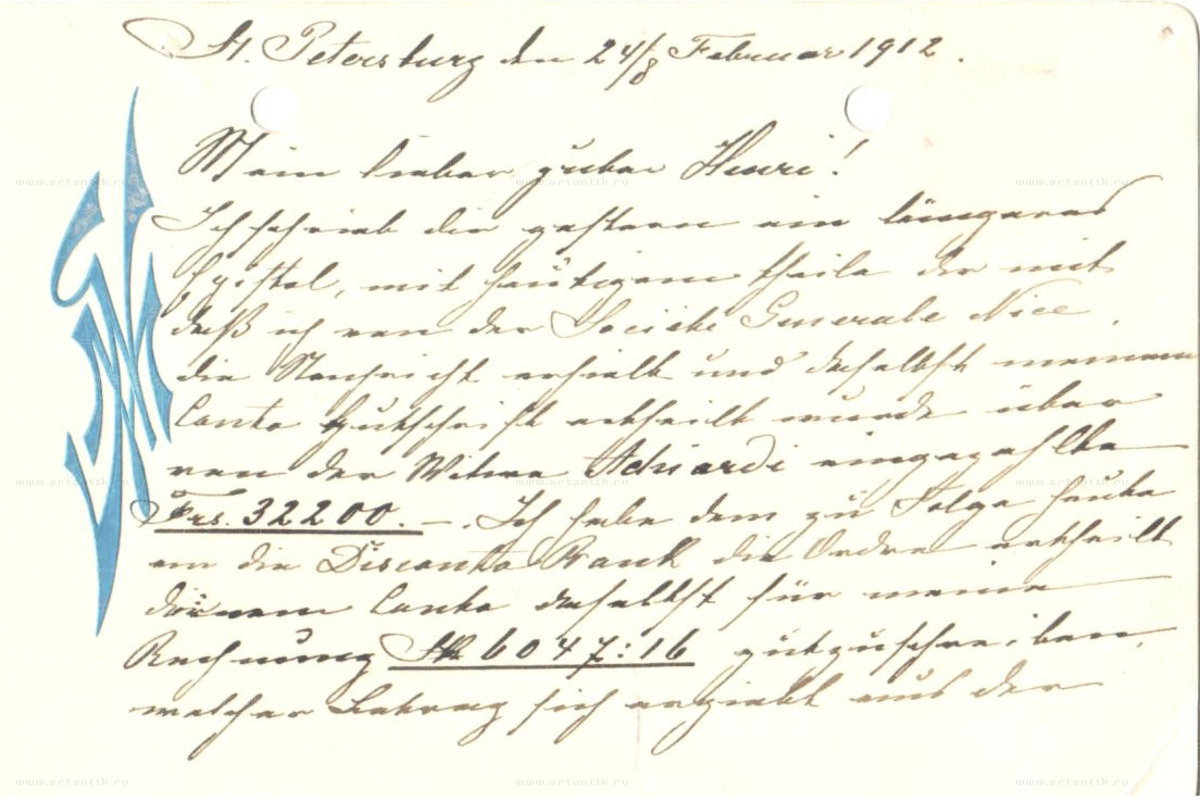 St. Petersburg den 24/8 Februar 1912.
Mein lieber guter Henri!
Ich schrieb dir gestern ein längeres
Epistel, mit heutigem theile dir mit
daß ich von der Societe Generale Nice,
die Nachricht erhielt und daselbst meinem
Conto Gutschrift ertheilt wurde über
von der Witwe eingezahlte
Frs. 32200.—. Ich habe dem zu Folge heute
an die Disconto Bank die Ordre ertheilt
deinem Conto daselbst für meine
Rechnung 6047:16 gutzuschreiben,
welcher Betrag sich ergiebt aus der
www.artantik.ru